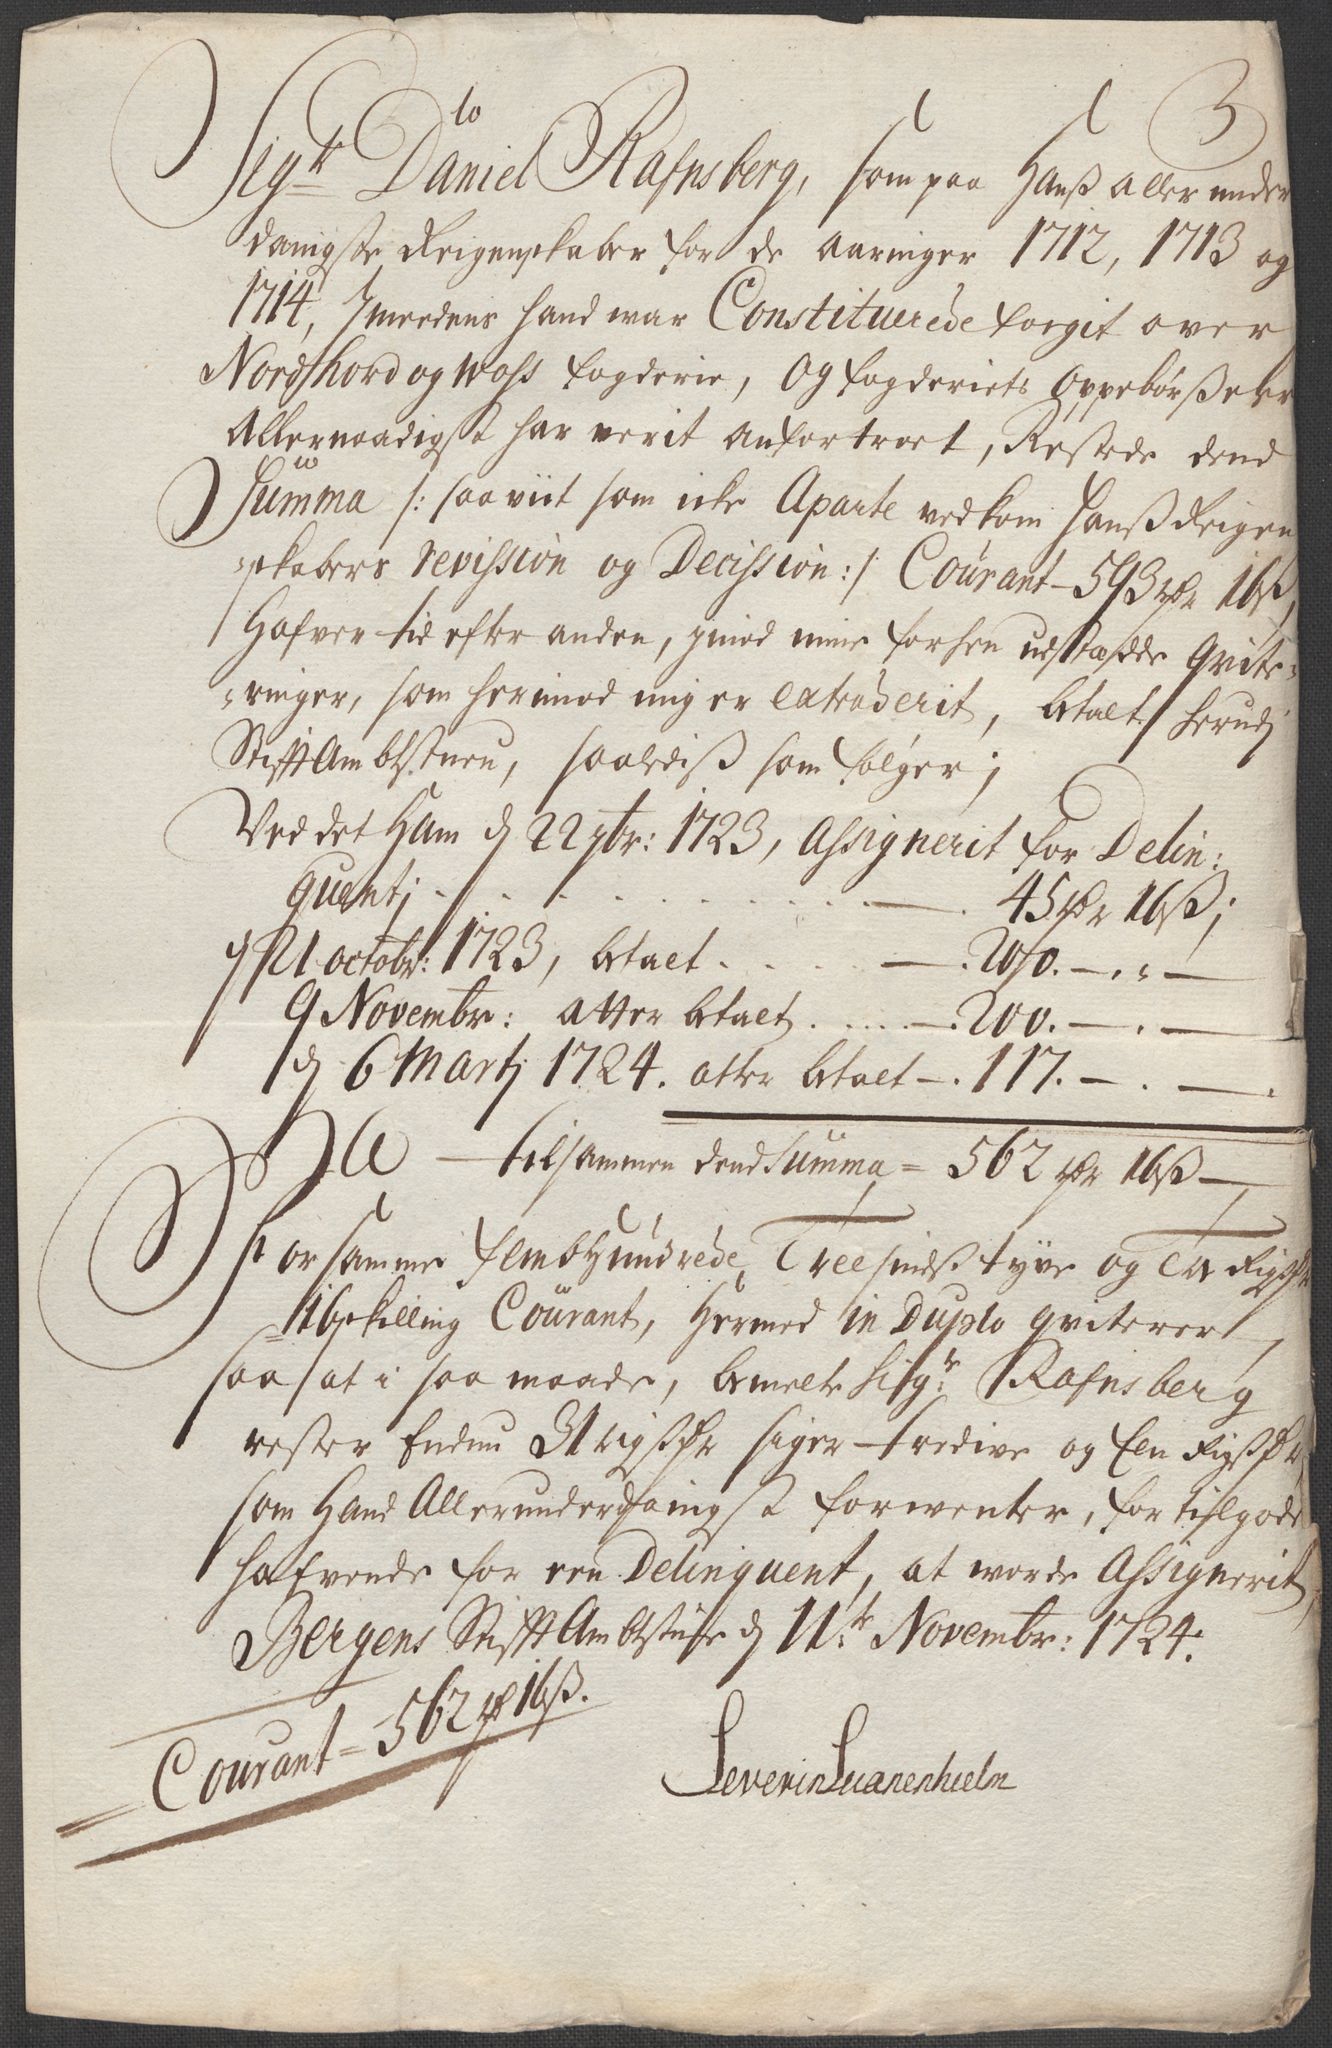 3
Sigr Daniel Rafnsberg, som paa Hanß aller under
danigste Reigenskaber for de aaringer 1712, 1713 og
1714, Imedens hand war Constituerede fogit over
Nordhord og Woss fogderie, og fogderiets oppebørßeler
Allernaadigst har verit anfortroet, Restede dend
Summa /: saa viit som icke Aparte vedkom hanß Reigen
-skabers revission og Decission :/ Courant - 593 rdr 16 ß,
Hafver tid efter anden, imod mine forhen udstædde qvite-
-ringer, som herimod mig er extraderit, betalt herudj
StifftAmbtstuen, saaledis som følger;
Ved det Ham d 22 7br: 1723, Assignerit for Delin:
quentj . . . . . . . . . . — . 45 rdr 16 ß;
d 21 octobr: 1723, betalt . . . . — . 200. — . " —
9 Novembr: atter betalt . . . . — . 200. — . —
d 6 Martj 1724. atter betalt — . 117. — . —
Er — tilsammen dend Summa = 562 rdr 16 ß —
For samme femb Hundrede, Treesindstyve og To Rigsdr
16 skilling Courant, hermed in Duplo qviterer,
saa at i saa maade, bemelte Sigr: Rafnsberg
rester Endnu 31 rigsdr siger tredive og Een Rigsdr
som Hand Allerunderdanigst forwenter, for tilgode
hafvende for een Delinquent, at worde Assignerit,
Bergens StifftAmbtstue d 11te Novembr: 1724.
Courant = 562 rdr 16 ß.
Severin Suanenhielm